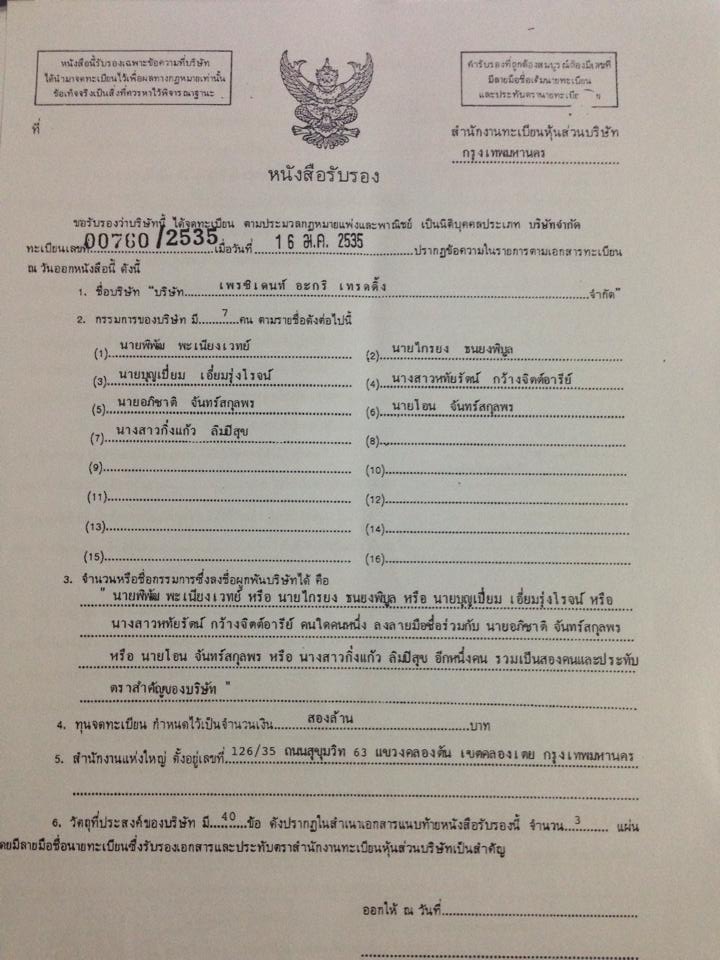 หนังสือนี้รับรองเฉพาะข้อความที่บริษัท
ได้นำมาจดทะเบียนไว้เพื่อผลทางกฎหมายเท่านั้น
ข้อเท็จจริงเป็นสิ่งที่ควรหาไว้พิจารณาฐานะ
คำรับรองที่ถูกต้องสมบูรณ์ต้องมีเลขที่
มีลายมือชื่อเต็มนายทะเบียน
และประทับตรานายทะเบียน
ที่
สำนักงานทะเบียนหุ้นส่วนบริษัท
กรุงเทพมหานคร
หนังสือรับรอง
ขอรับรองว่าบริษัทนี้ ได้จดทะเบียน ตามประมวลกฎหมายแพ่งและพาณิชย์ เป็นนิติบุคคลประเภท บริษัทจำกัด
ทะเบียนเลขที่ 00760/2535 เมื่อวันที่ 16 ม.ค. 2535 ปรากฏข้อความในรายการตามเอกสารทะเบียน
ณ วันออกหนังสือนี้ ดังนี้
1. ชื่อบริษัท "บริษัท เพรซิเดนท์ อะกริ เทรดดิ้ง จำกัด"
2. กรรมการของบริษัท มี 7 คน ตามรายชื่อดังต่อไปนี้
(1) นายพิพัฒ พะเนียงเวทย์ (2) นายไกรยง ธนยงพิบูล
(3) นายบุญเปี่ยม เอี่ยมรุ่งโรจน์ (4) นางสาวหทัยรัตน์ กว้างจิตต์อารีย์
(5) นายอภิชาติ จันทร์สกุลพร (6) นายโอน จันทร์สกุลพร
(7) นางสาวกิ่งแก้ว ลิมปิสุข (8)
(9) (10)
(11) (12)
(13) (14)
(15) (16)
3. จำนวนหรือชื่อกรรมการซึ่งลงชื่อผูกพันบริษัทได้ คือ
" นายพิพัฒ พะเนียงเวทย์ หรือ นายไกรยง ธนยงพิบูล หรือ นายบุญเปี่ยม เอี่ยมรุ่งโรจน์ หรือ
นางสาวหทัยรัตน์ กว้างจิตต์อารีย์ คนใดคนหนึ่ง ลงลายมือชื่อร่วมกับ นายอภิชาติ จันทร์สกุลพร
หรือ นายโอน จันทร์สกุลพร หรือ นางสาวกิ่งแก้ว ลิมปิสุข อีกหนึ่งคน รวมเป็นสองคนและประทับ
ตราสำคัญของบริษัท "
4. ทุนจดทะเบียน กำหนดไว้เป็นจำนวนเงิน สองล้าน บาท
5. สำนักงานแห่งใหญ่ ตั้งอยู่เลขที่ 126/35 ถนนสุขุมวิท 63 แขวงคลองตัน เขตคลองเตย กรุงเทพมหานคร
6. วัตถุที่ประสงค์ของบริษัท มี 40 ข้อ ดังปรากฏในสำเนาเอกสารแนบท้ายหนังสือรับรองนี้ จำนวน 3 แผ่น
โดยมีลายมือชื่อนายทะเบียนซึ่งรับรองเอกสารและประทับตราสำนักงานทะเบียนหุ้นส่วนบริษัทเป็นสำคัญ
ออกให้ ณ วันที่